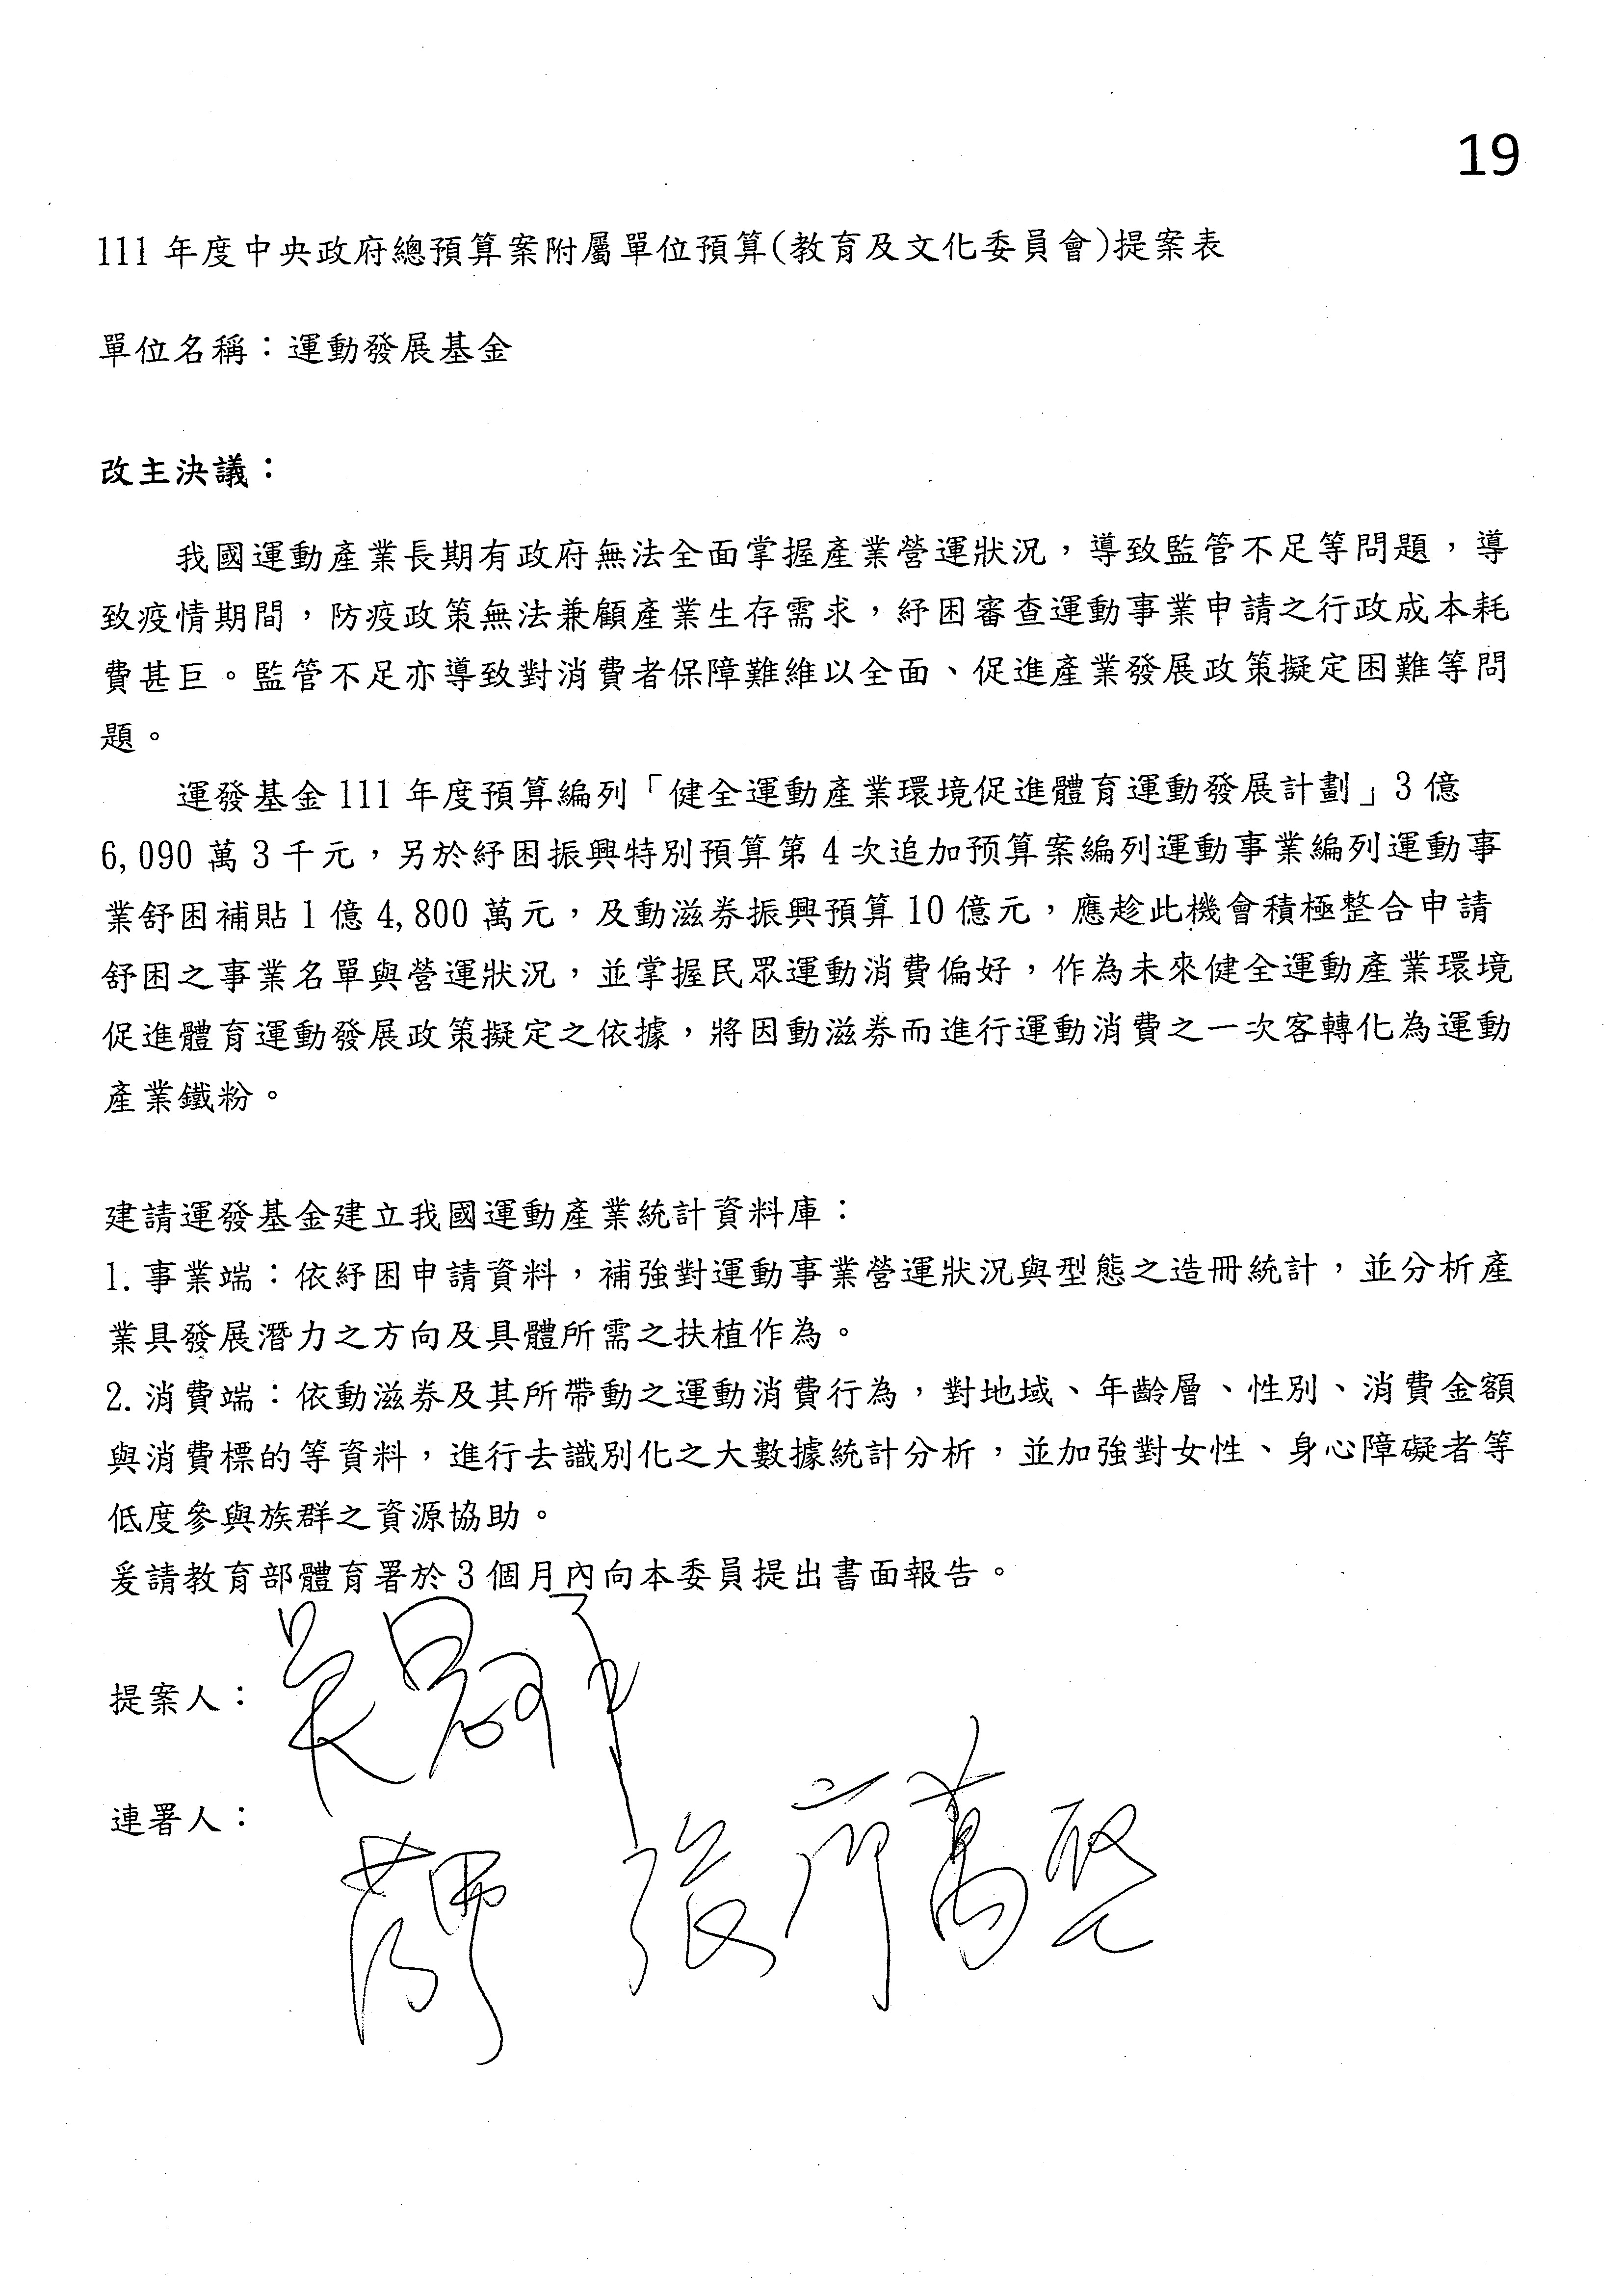 19
111 年度中央政府總預算案附屬單位預算(教育及文化委員會)提案表
單位名稱：運動發展基金
改主決議：
我國運動產業長期有政府無法全面掌握產業營運狀況，導致監管不足等問題，導
致疫情期間，防疫政策無法兼顧產業生存需求，紓困審查運動事業申請之行政成本耗
費甚巨。監管不足亦導致對消費者保障難維以全面、促進產業發展政策擬定困難等問
題。
運發基金 111 年度預算編列「健全運動產業環境促進體育運動發展計劃」3 億
6,090 萬 3 千元，另於紓困振興特別預算第 4 次追加預算案編列運動事業編列運動事
業舒困補貼 1 億 4,800 萬元，及動滋券振興預算 10 億元，應趁此機會積極整合申請
舒困之事業名單與營運狀況，並掌握民眾運動消費偏好，作為未來健全運動產業環境
促進體育運動發展政策擬定之依據，將因動滋券而進行運動消費之一次客轉化為運動
產業鐵粉。
建請運發基金建立我國運動產業統計資料庫：
1. 事業端：依紓困申請資料，補強對運動事業營運狀況與型態之造冊統計，並分析產
業具發展潛力之方向及具體所需之扶植作為。
2. 消費端：依動滋券及其所帶動之運動消費行為，對地域、年齡層、性別、消費金額
與消費標的等資料，進行去識別化之大數據統計分析，並加強對女性、身心障礙者等
低度參與族群之資源協助。
爰請教育部體育署於 3 個月內向本委員提出書面報告。
提案人：
連署人：